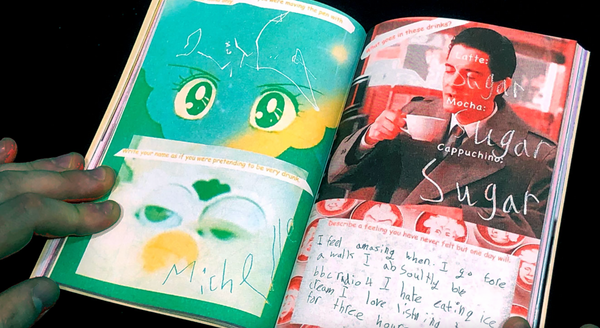 you were moving the pen with
Write your name as if you were pretending to be very drunk
Michelle
What goes in these drinks?
Latte:
Sugar
Mocha:
Sugar
Cappuchino:
Sugar
Describe a feeling you have never felt but one day will.
I feel amazing when I go fore
a walk I absoultly
bbc radio 4 I hate eating ice
cream I love
for three hours